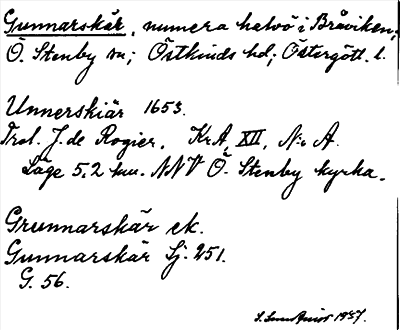 Gunnarskär, numera halvö i Bråviken;
Ö. Stenby sn; Östkinds hd; Östergötl. l.
Unnerskiär 1653.
Trol. J. de Rogier. KrA, XII, N:o A.
Läge 5,2 km. NNV Ö. Stenby kyrka.
Grunnarskär ek.
Gunnarskär Sj. 251.
G. 56.
1937.